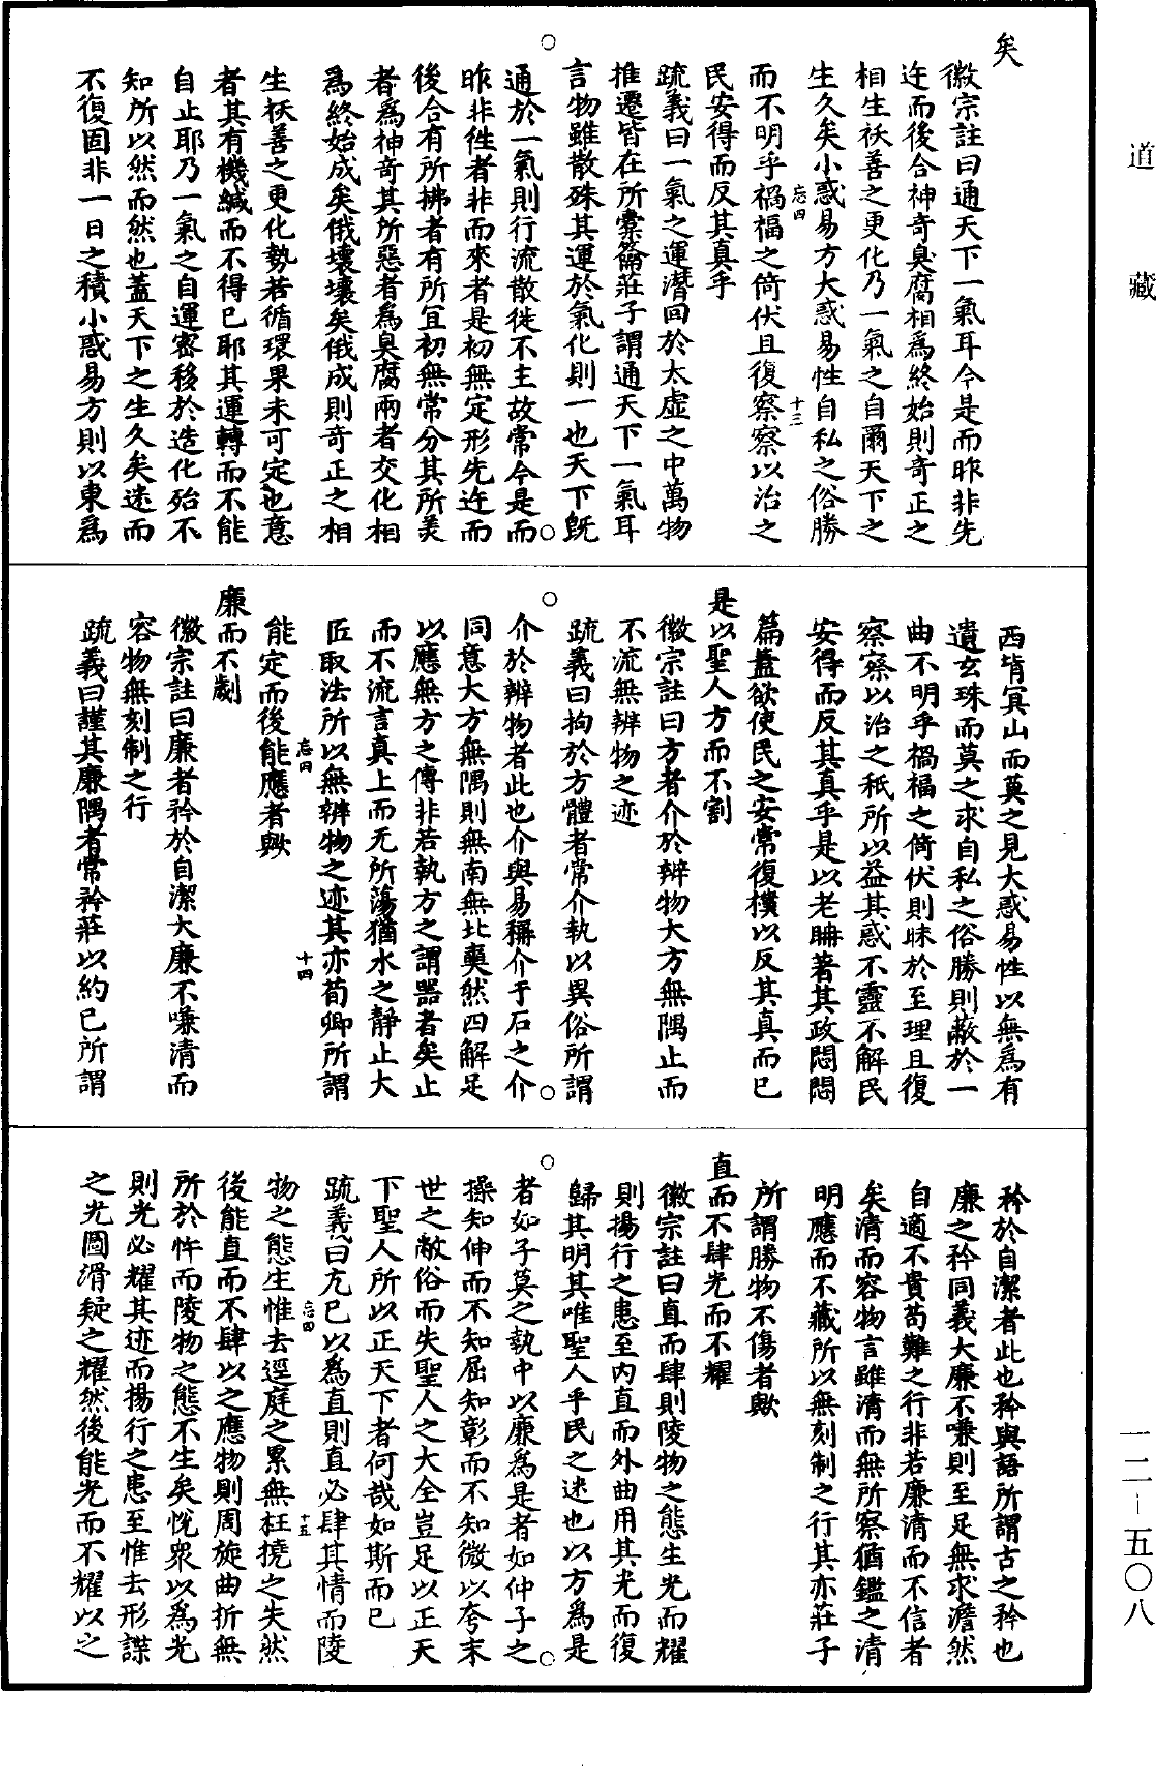 道藏
矣
徽宗註曰通天下一氣耳今是而昨非先
迕而後合神奇臭腐相為終始則奇正之
相生祅善之更化乃一氣之自爾天下之
生久矣小惑易方大惑易性自私之俗勝
而不明乎禍福之倚伏且復察察以治之
忘四
十三
民安得而反其真乎
疏義曰一氣之運潛回於太虛之中萬物
推遷皆在所橐籥莊子謂通天下一氣耳
言物雖散殊其運於氣化則一也天下既
通於一氣則行流散徙不主故常今是而
昨非徃者非而來者是初無定形先迕而
後合有所拂者有所宜初無常分其所羙
者為神奇其所惡者為臭腐兩者交化相
為終始成矣俄壞壞矣俄成則奇正之相
生祅善之更化勢若循環果未可定也意
者其有機緘而不得已耶其運轉而不能
自止耶乃一氣之自運密移於造化殆不
知所以然而然也蓋天下之生久矣迷而
不復固非一日之積小惑易方則以東為
西背冥山而莫之見大惑易性以無為有
遺玄珠而莫之求自私之俗勝則蔽於一
曲不明乎禍福之倚伏則昧於至理且復
察察以治之秖所以益其惑不靈不解民
安得而反其真乎是以老聃著其政悶悶
篇蓋欲使民之安常復樸以反其真而已
是以聖人方而不割
徽宗註曰方者介於辨物大方無隅止而
不流無辨物之迹
疏義曰拘於方體者常介執以異俗所謂
介於辨物者此也介與易稱介于石之介
同意大方無隅則無南無北奭然四解足
以應無方之傳非若執方之謂器者矣止
而不流言真上而无所蕩猶水之靜止大
匠取法所以無辨物之迹其亦荀卿所謂
忘四
十四
能定而後能應者歟
廉而不劌
徽宗註曰廉者矜於自潔大廉不嗛清而
容物無刻制之行
疏義曰謹其廉隅者常矜莊以約己所謂
矜於自潔者此也矜與語所謂古之矜也
廉之矜同義大廉不嗛則至足無求澹然
自適不貴苟難之行非若廉清而不信者
矣清而容物言雖清而無所察猶鑑之清
明應而不藏所以無刻制之行其亦莊子
所謂勝物不傷者歟
直而不肆光而不耀
徽宗註曰直而肆則陵物之態生光而耀
則揚行之患至內直而外曲用其光而復
歸其明其唯聖人乎民之迷也以方為是
者如子莫之執中以廉為是者如仲子之
操知伸而不知屈知彰而不知微以夸末
世之敝俗而失聖人之大全豈足以正天
下聖人所以正天下者何哉如斯而已
疏義曰亢己以為直則直必肆其情而陵
忘四
十五
物之態生惟去逕庭之累無枉撓之失然
後能直而不肆以之應物則周旋曲折無
所於忤而陵物之態不生矣悅眾以為光
則光必耀其迹而揚行之患至惟去形諜
之光圖滑疑之耀然後能光而不耀以之
一二-五〇八